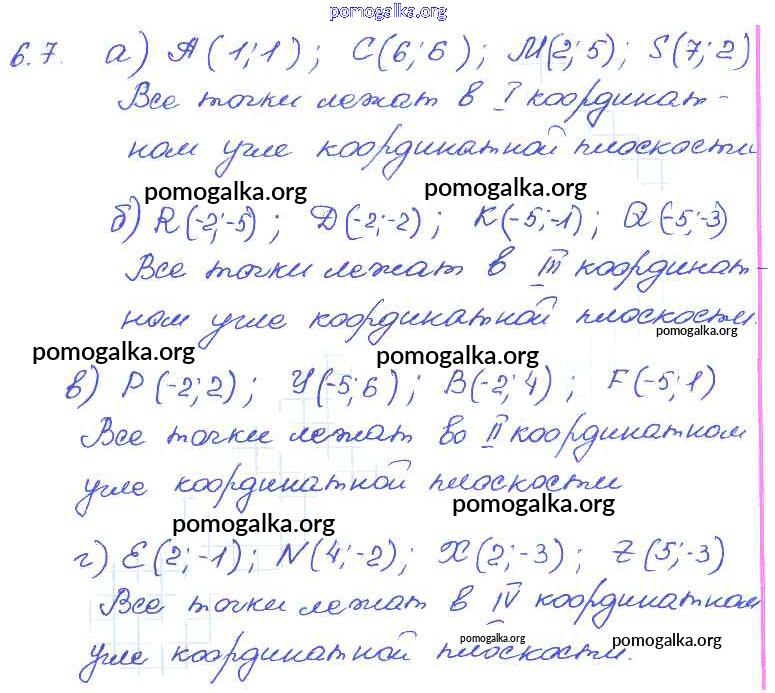 pomogalka.org
6.7. а) A(1;1); C(6;6); M(2;5); S(7;2)
Все точки лежат в I координат-
ном угле координатной плоскости
pomogalka.org pomogalka.org
б) R(-2;-5); D(-2;-2); K(-5;-1); Q(-5;-3)
Все точки лежат в III координат-
ном угле координатной плоскости.
pomogalka.org
pomogalka.org pomogalka.org
в) P(-2;2); Y(-5;6); B(-2;4); F(-5;1)
Все точки лежат во II координатном
угле координатной плоскости
pomogalka.org
pomogalka.org
г) E(2;-1); N(4;-2); X(2;-3); Z(5;-3)
Все точки лежат в IV координатном
pomogalka.org pomogalka.org
угле координатной плоскости.